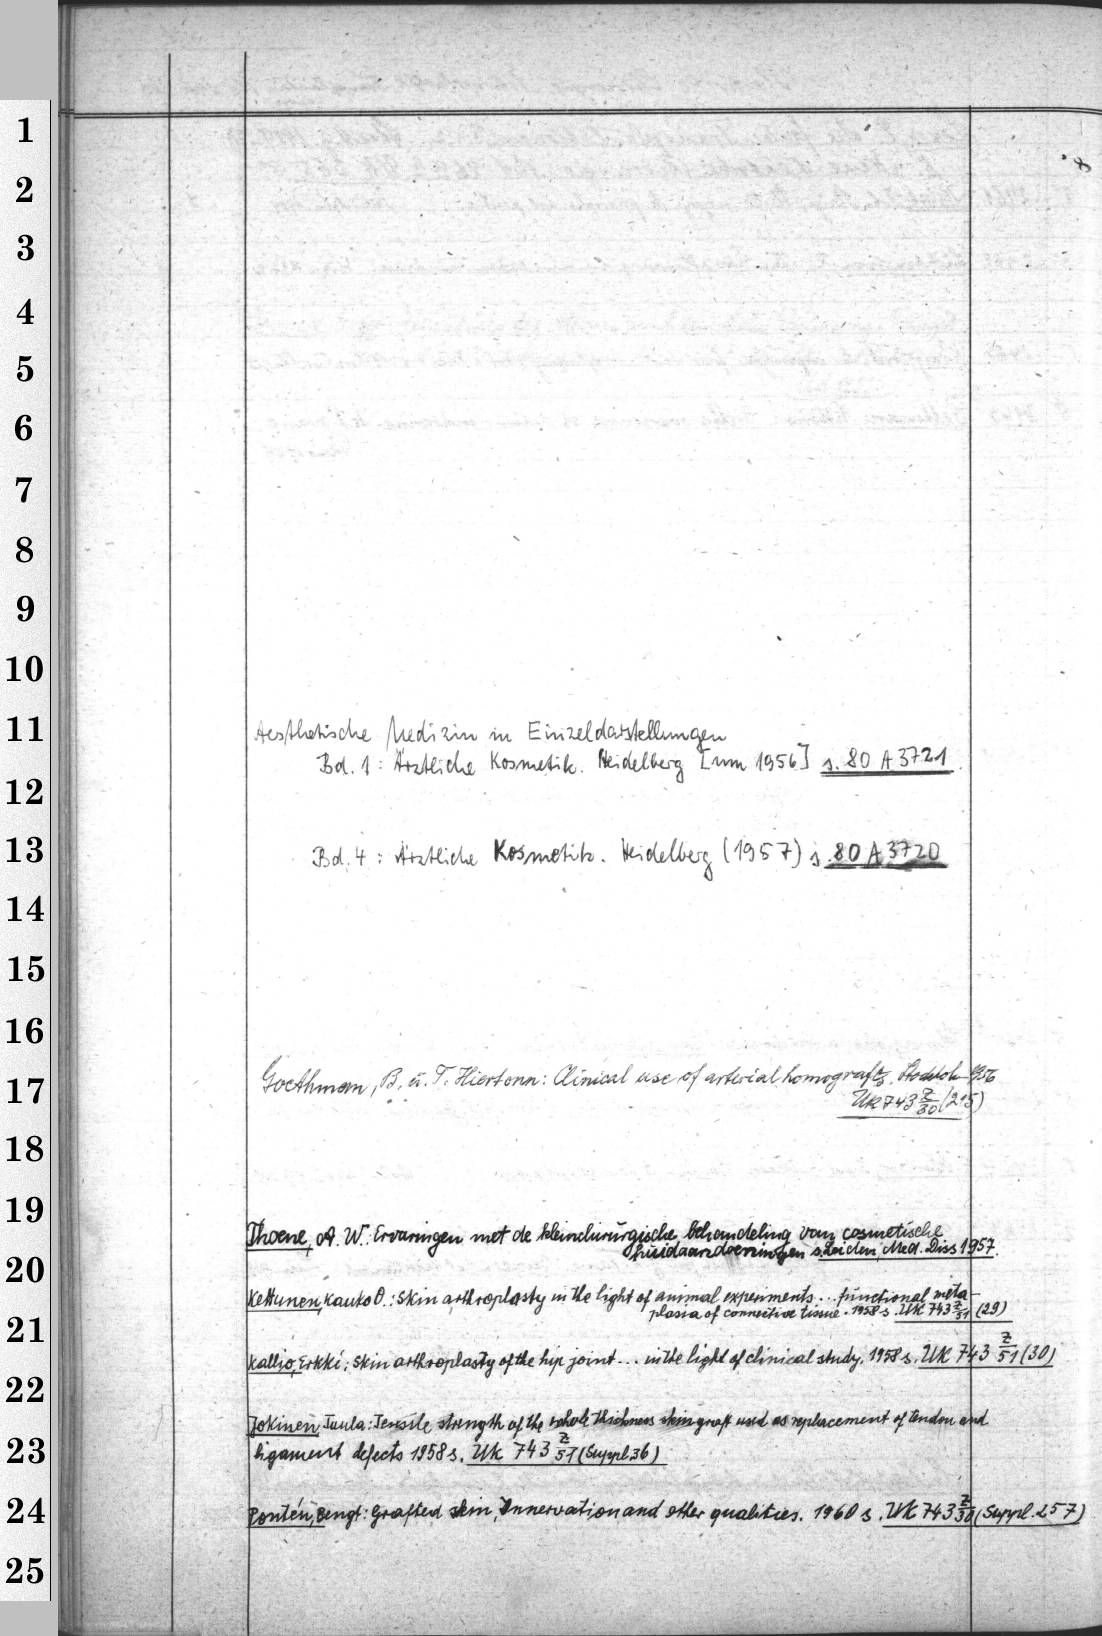 8
1
2
3
4
5
6
7
8
9
10
11
12
13
14
15
16
17
18
19
20
21
22
23
24
25
Aesthetische Medizin in Einzeldarstellungen
Bd. 1: Ärztliche Kosmetik. Heidelberg [um 1956] s. 80 A 3721
Bd. 4: Ärztliche Kosmetik. Heidelberg (1957) s. 80 A 3720
Goethman, B. u. T. Hiertonn: Clinical use of arterial homografts. 1956
UK 743 Z/30 (215)
Thoene, A. W.: Ervaringen met de kleinchirurgische behandeling van cosmetische
huidaandoeningen s. Leiden, Med. Diss 1957.
Kettunen, Kauko O.: Skin arthroplasty in the light of animal experiments... functional meta-
plasia of connective tissue. 1958 s. UK 743 Z/51 (29)
Kallio, Erkki: Skin arthroplasty of the hip joint... in the light of clinical study. 1958 s. UK 743 Z/51 (30)
Jokinen, Taula: Tensile strength of the whole thickness skin graft used as replacement of tendon and
ligament defects 1958 s. UK 743 Z/51 (Suppl. 36)
Pontén, Bengt: Grafted skin, Innervation and other qualities. 1960 s. UK 743 Z/30 (Suppl. 257)